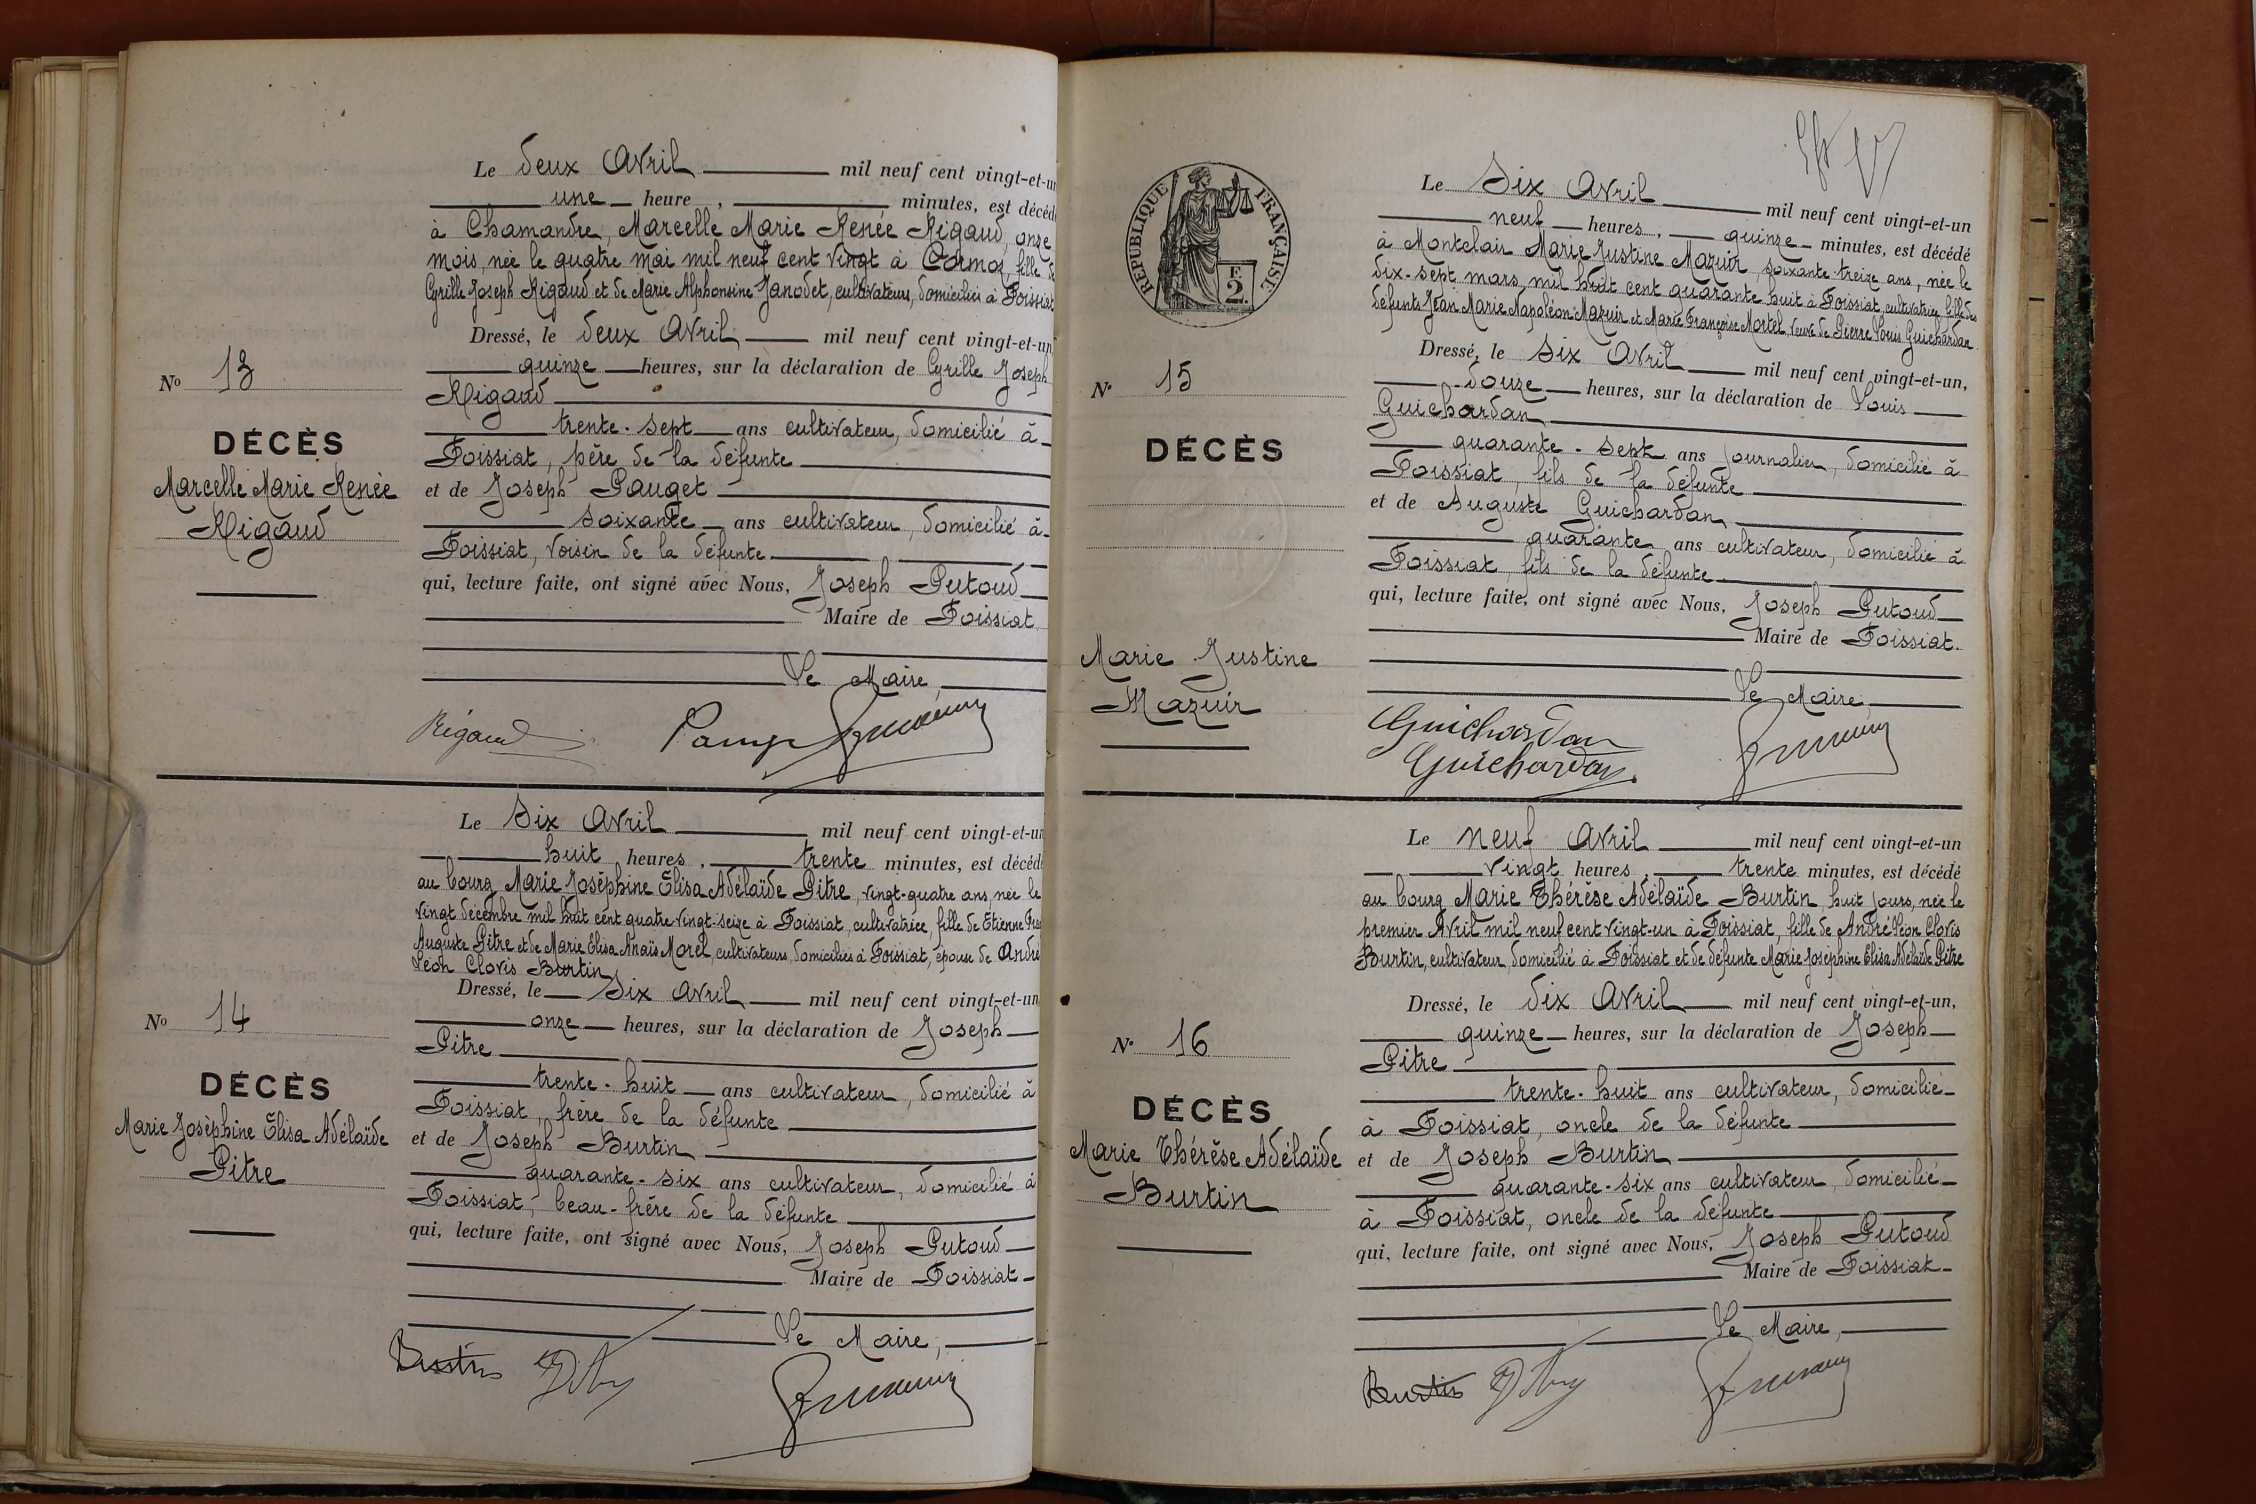 Le deux Avril mil neuf cent vingt-et-un
une heure, minutes, est décédé
à Chamandre, Marcelle Marie Renée Rigaud, onze
mois, née le quatre mai mil neuf cent vingt à Cormoz, fille de
Cyrille Joseph Rigaud et de Marie Alphonsine Janodet, cultivateurs, domiciliés à Foissiat
Dressé, le deux Avril mil neuf cent vingt-et-un,
quinze heures, sur la déclaration de Cyrille Joseph
Rigaud
trente-sept ans cultivateur, domicilié à
Foissiat, père de la défunte
et de Joseph Pauget
soixante ans cultivateur, domicilié à
Foissiat, voisin de la défunte
qui, lecture faite, ont signé avec Nous, Joseph Putoud
Maire de Foissiat
Le Maire,
Rigaud
No 13
DÉCÈS
Marcelle Marie Renée
Rigaud
Le six Avril mil neuf cent vingt-et-un
huit heures, trente minutes, est décédé
au bourg Marie Joséphine Élisa Adélaïde Pitre, vingt-quatre ans, née le
vingt décembre mil huit cent quatre-vingt-seize à Foissiat, cultivatrice, fille de Etienne
Auguste Pitre et de Marie Élisa Anaïs Morel, cultivateurs, domiciliés à Foissiat, épouse de André
Léon Clovis Burtin
Dressé, le six Avril mil neuf cent vingt-et-un
onze heures, sur la déclaration de Joseph
Pitre
trente-huit ans cultivateur, domicilié à
Foissiat, frère de la défunte
et de Joseph Burtin
quarante-six ans cultivateur, domicilié à
Foissiat, beau-frère de la défunte
qui, lecture faite, ont signé avec Nous, Joseph Putoud
Maire de Foissiat
Le Maire,
Burtin
No 14
DÉCÈS
Marie Josèphine Élisa Adélaïde
Pitre
RÉPUBLIQUE FRANÇAISE
F.
2.
Le six Avril mil neuf cent vingt-et-un
neuf heures, quinze minutes, est décédé
à Montclair Marie Justine Mazuir, soixante-treize ans, née le
dix-sept mars, mil huit cent quarante huit à Foissiat, cultivatrice, fille des
défunts Jean Marie Napoléon Mazuir et Marie Françoise Mortel, veuve de Pierre Louis Guichardan
Dressé, le six Avril mil neuf cent vingt-et-un,
douze heures, sur la déclaration de Louis
Guichardan
quarante-sept ans journalier, domicilié à
Foissiat, fils de la défunte
et de Auguste Guichardan
quarante ans cultivateur, domicilié à
Foissiat, fils de la défunte
qui, lecture faite, ont signé avec Nous, Joseph Putoud
Maire de Foissiat.
Le Maire,
Guichardan
Guichardan
No 15
DÉCÈS
Marie Justine
Mazuir
Le neuf Avril mil neuf cent vingt-et-un
vingt heures, trente minutes, est décédé
au bourg Marie Thérèse Adélaïde Burtin, huit jours, née le
premier Avril mil neuf cent vingt-un à Foissiat, fille de André Léon Clovis
Burtin, cultivateur, domicilié à Foissiat et de défunte Marie Joséphine Élisa Adélaïde Pitre
Dressé, le dix Avril mil neuf cent vingt-et-un,
quinze heures, sur la déclaration de Joseph
Pitre
trente-huit ans cultivateur, domicilié
à Foissiat, oncle de la défunte
et de Joseph Burtin
quarante-six ans cultivateur, domicilié
à Foissiat, oncle de la défunte
qui, lecture faite, ont signé avec Nous, Joseph Putoud
Maire de Foissiat
Le Maire,
Burtin
No 16
DÉCÈS
Marie Thérèse Adélaïde
Burtin